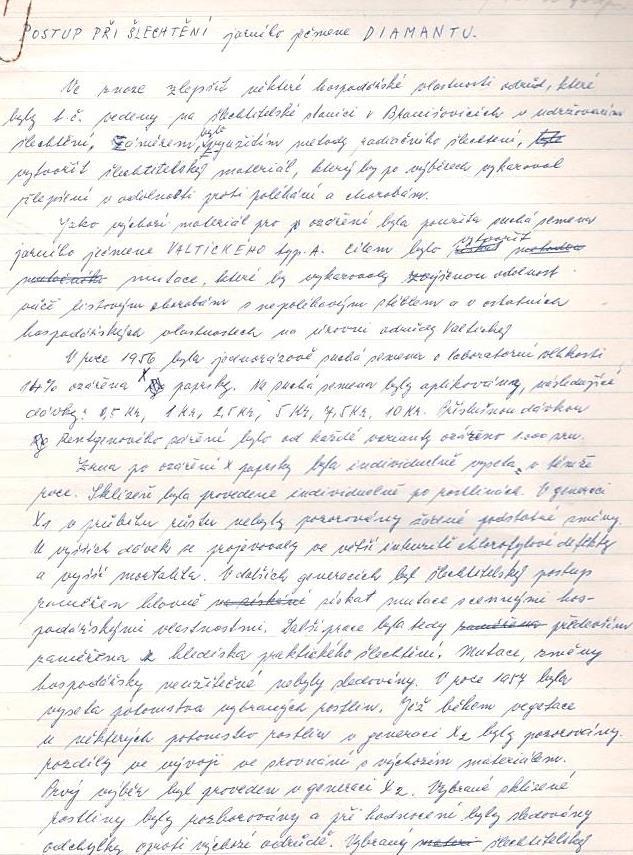 POSTUP PŘI ŠLECHTĚNÍ jarního ječmene DIAMANTU.
Ve snaze zlepšit některé hospodářské vlastnosti odrůd, které
byly t.č. vedeny na šlechtitelské stanici v Branišovicích v udržovacím
šlechtění, záměrem bylo využitím metody radiačního šlechtění, bylo
vytvořit šlechtitelský materiál, který by po výběrech vykazoval
zlepšení v odolnosti proti poléhání a chorobám.
Jako výchozí materiál pro ozáření byla použita suchá semena
jarního ječmene VALTICKÉHO typ. A. Cílem bylo získat vytvořit metodou
mutačního mutace, které by vykazovaly zvýšenou odolnost
vůči listovým chorobám s nepoléhavým stéblem a v ostatních
hospodářských vlastnostech na úrovni odrůdy Valtický
V roce 1956 byla jednorázově suchá semena o laboratorní vlhkosti
14% ozářena X paprsky. Na suchá semena byly aplikovány, následující
dávky: 0,5 Kr, 1 Kr, 2,5 Kr, 5 Kr, 7,5 Kr, 10 Kr. Příslušnou dávkou
Rentgenového záření bylo od každé varianty ozářeno 1.000 zrn.
Zrna po ozáření X paprsky byla individuelně vyseta v témže
roce. Sklizeň byla provedena individuelně po rostlinách. V generaci
X1 v průběhu růstu nebyly pozorovány žádné podstatné změny.
U vyšších dávek se projevovaly ve větší intensitě chlorofylové defekty
a vyšší mortalita. V dalších generacích byl šlechtitelský postup
zaměřen hlavně na získání získat mutace s cennými hos-
podářskými vlastnostmi. Další práce byla tedy zaměřena především
zaměřena z hlediska praktického šlechtění. Mutace, změny
hospodářsky neužitečné nebyly sledovány. V roce 1957 byla
vyseta potomstva vybraných rostlin. Již během vegetace
u některých potomstev rostlin v generaci X2 byly pozorovány.
rozdíly ve vývoji ve srovnání s výchozím materiálem.
Prvý výběr byl proveden v generaci X2. Vybrané sklizené
rostliny byly rozborovány a při hodnocení byly sledovány
odchylky oproti výchozí odrůdě. Vybraný materi šlechtitelský